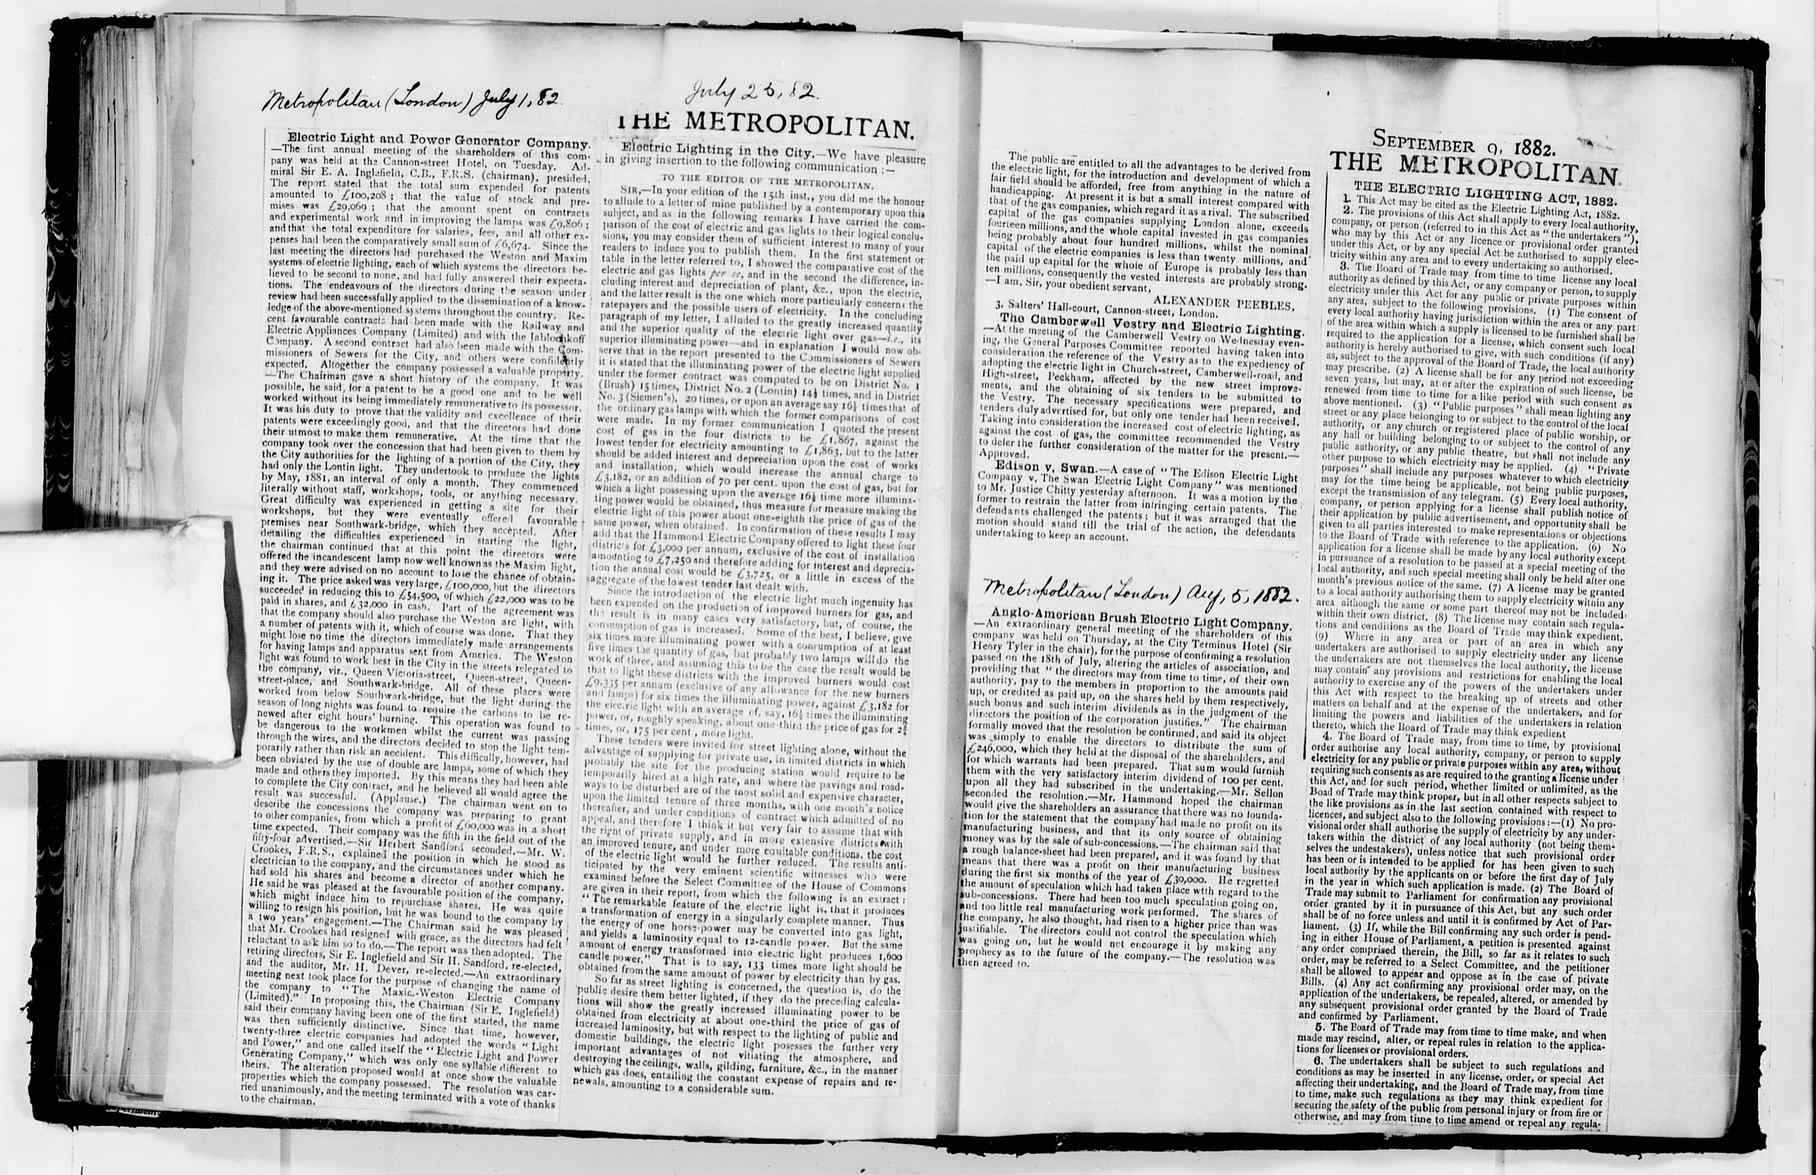 Metropolitan (London) July 1, 82.
Electric Light and Power Generator Company.
—The first annual meeting of the shareholders of this com-
pany was held at the Cannon-street Hotel, on Tuesday. Ad-
miral Sir E. A. Inglefield, C.B., F.R.S. (chairman), presided.
The report stated that the total sum expended for patents
amounted to £100,208; that the value of stock and pre-
mises was £29,069; that the amount spent on contracts
and experimental work and in improving the lamps was £9,806;
and that the total expenditure for salaries, fees, and all other ex-
penses had been the comparatively small sum of £6,674. Since the
last meeting the directors had purchased the Weston and Maxim
systems of electric lighting, each of which systems the directors be-
lieved to be second to none, and had fully answered their expecta-
tions. The endeavours of the directors during the season under
review had been successfully applied to the dissemination of a know-
ledge of the above-mentioned systems throughout the country. Re-
cent favourable contracts had been made with the Railway and
Electric Appliances Company (Limited) and with the Jablochkoff
Company. A second contract had also been made with the Com-
missioners of Sewers for the City, and others were confidently
expected. Altogether the company possessed a valuable property.
—The Chairman gave a short history of the company. It was
possible, he said, for a patent to be a good one and to be well
worked without its being immediately remunerative to its possessor.
It was his duty to prove that the validity and excellence of their
patents were exceedingly good, and that the directors had done
their utmost to make them remunerative. At the time that the
company took over the concession that had been given to them by
the City authorities for the lighting of a portion of the City, they
had only the Lontin light. They undertook to produce the lights
by May, 1881, an interval of only a month. They commenced
literally without staff, workshops, tools, or anything necessary.
Great difficulty was experienced in getting a site for their
workshops, but they were eventually offered favourable
premises near Southwark-bridge, which they accepted. After
detailing the difficulties experienced in starting the light,
the chairman continued that at this point the directors were
offered the incandescent lamp now well known as the Maxim light,
and they were advised on no account to lose the chance of obtain-
ing it. The price asked was very large, £100,000, but the directors
succeeded in reducing this to £54,500, of which £22,000 was to be
paid in shares, and £32,000 in cash. Part of the agreement was
that the company should also purchase the Weston arc light, with
a number of patents with it, which of course was done. That they
might lose no time the directors immediately made arrangements
for having lamps and apparatus sent from America. The Weston
light was found to work best in the City in the streets relegated to
the company, viz., Queen Victoria-street, Queen-street, Queen-
street-place, and Southwark-bridge. All of these places were
worked from below Southwark-bridge, but the light during the
season of long nights was found to require the carbons to be re-
newed after eight hours' burning. This operation was found to
be dangerous to the workmen whilst the current was passing
through the wires, and the directors decided to stop the light tem-
porarily rather than risk an accident. This difficulty, however, had
been obviated by the use of double arc lamps, some of which they
made and others they imported. By this means they had been able
to complete the City contract, and he believed all would agree the
result was successful. (Applause.) The chairman went on to
describe the concessions the company was preparing to grant
to other companies, from which a profit of £60,000 was in a short
time expected. Their company was the fifth in the field out of the
fifty-four advertised.—Sir Herbert Sandford seconded.—Mr. W.
Crookes, F.R.S., explained the position in which he stood as
electrician to the company, and the circumstances under which he
had sold his shares and become a director of another company.
He said he was pleased at the favourable position of the company,
which might induce him to repurchase shares. He was quite
willing to resign his position, but he was bound to the company by
a two years' engagement.—The Chairman said he was pleased
that Mr. Crookes had resigned with grace, as the directors had felt
reluctant to ask him so to do.—The report was then adopted. The
retiring directors, Sir E. Inglefield and Sir H. Sandford, re-elected,
and the auditor, Mr. H. Dever, re-elected.—An extraordinary
meeting next took place for the purpose of changing the name of
the company to "The Maxim-Weston Electric Company
(Limited)." In proposing this, the Chairman (Sir E. Inglefield)
said their company having been one of the first started, the name
was then sufficiently distinctive. Since that time, however,
twenty-three electric companies had adopted the words "Light
and Power," and one called itself the "Electric Light and Power
Generating Company," which was only one syllable different to
theirs. The alteration proposed would at once show the valuable
properties which the company possessed. The resolution was car-
ried unanimously, and the meeting terminated with a vote of thanks
to the chairman.
July 25, 82.
THE METROPOLITAN.
Electric Lighting in the City.—We have pleasure
in giving insertion to the following communication:—
TO THE EDITOR OF THE METROPOLITAN.
SIR,—In your edition of the 15th inst., you did me the honour
to allude to a letter of mine published by a contemporary upon this
subject, and as in the following remarks I have carried the com-
parison of the cost of electric and gas lights to their logical conclu-
sions, you may consider them of sufficient interest to many of your
readers to induce you to publish them. In the first statement or
table in the letter referred to, I showed the comparative cost of the
electric and gas lights per se, and in the second the difference, in-
cluding interest and depreciation of plant, &c., upon the electric,
and the latter result is the one which more particularly concerns the
ratepayers and the possible users of electricity. In the concluding
paragraph of my letter, I alluded to the greatly increased quantity
and the superior quality of the electric light over gas—i.e., its
superior illuminating power—and in explanation I would now ob-
serve that in the report presented to the Commissioners of Sewers
it is stated that the illuminating power of the electric light supplied
under the former contract was computed to be on District No. 1
(Brush) 15 times, District No. 2 (Lontin) 14½ times, and in District
No. 3 (Siemen's), 20 times, or upon an average say 16½ times that of
the ordinary gas lamps with which the former comparisons of cost
were made. In my former communication I quoted the present
cost of gas in the four districts to be £1,867, against the
lowest tender for electricity amounting to £1,863, but to the latter
should be added interest and depreciation upon the cost of works
and installation, which would increase the annual charge to
£3,182, or an addition of 70 per cent. upon the cost of gas, but for
which a light possessing upon the average 16½ time more illumina-
ting power would be obtained, thus measure for measure making the
electric light of this power about one-eighth the price of gas of the
same power, when obtained. In confirmation of these results I may
add that the Hammond Electric Company offered to light these four
districts for £3,000 per annum, exclusive of the cost of installation
amounting to £7,250 and therefore adding for interest and deprecia-
tion the annual cost would be £3,725, or a little in excess of the
aggregate of the lowest tender last dealt with.
Since the introduction of the electric light much ingenuity has
been expended on the production of improved burners for gas, and
the result is in many cases very satisfactory, but, of course, the
consumption of gas is increased. Some of the best, I believe, give
six times more illuminating power with a consumption of at least
five times the quantity of gas, but probably two lamps will do the
work of three, and assuming this to be the case the result would be
that to light these districts with the improved burners would cost
£9,335 per annum (exclusive of any allowance for the new burners
and lamps) for six times the illuminating power, against £3,182 for
the electric light with an average of, say, 16½ times the illuminating
power, or, roughly speaking, about one third the price of gas for 2¾
times, or, 175 per cent., more light.
These tenders were invited for street lighting alone, without the
advantage of supplying for private use, in limited districts in which
probably the site for the producing station would require to be
temporarily hired at a high rate, and where the pavings and road-
ways to be disturbed are of the most solid and expensive character,
upon the limited tenure of three months, with one month's notice
thereafter, and under conditions of contract which admitted of no
appeal, and therefore I think it but very fair to assume that with
the right of private supply, and in more extensive districts with
an improved tenure, and under more equitable conditions, the cost
of the electric light would be further reduced. The results anti-
cipated by the very eminent scientific witnesses who were
examined before the Select Committee of the House of Commons
are given in their report, from which the following is an extract:
"The remarkable feature of the electric light is, that it produces
a transformation of energy in a singularly complete manner. Thus
the energy of one horse-power may be converted into gas light,
and yields a luminosity equal to 12-candle power. But the same
amount of energy transformed into electric light produces 1,600
candle power." That is to say, 133 times more light should be
obtained from the same amount of power by electricity than by gas.
So far as street lighting is concerned, the question is, do the
public desire them better lighted, if they do the preceding calcula-
tions will show the greatly increased illuminating power to be
obtained from electricity at about one-third the price of gas of
increased luminosity, but with respect to the lighting of public and
domestic buildings, the electric light posesses the further very
important advantages of not vitiating the atmosphere, and
destroying the ceilings, walls, gilding, furniture, &c., in the manner
which gas does, entailing the constant expense of repairs and re-
newals, amounting to a considerable sum.
The public are entitled to all the advantages to be derived from
the electric light, for the introduction and development of which a
fair field should be afforded, free from anything in the nature of
handicapping. At present it is but a small interest compared with
that of the gas companies, which regard it as a rival. The subscribed
capital of the gas companies supplying London alone, exceeds
fourteen millions, and the whole capital invested in gas companies
being probably about four hundred millions, whilst the nominal
capital of the electric companies is less than twenty millions, and
the paid up capital for the whole of Europe is probably less than
ten millions, consequently the vested interests are probably strong.
—I am, Sir, your obedient servant,
ALEXANDER PEEBLES,
3, Salters' Hall-court, Cannon-street, London.
The Camberwell Vestry and Electric Lighting.
—At the meeting of the Camberwell Vestry on Wednesday even-
ing, the General Purposes Committee reported having taken into
consideration the reference of the Vestry as to the expediency of
adopting the electric light in Church-street, Camberwell-road, and
High-street, Peckham, affected by the new street improve-
ments, and the obtaining of six tenders to be submitted to
the Vestry. The necessary specifications were prepared, and
tenders duly advertised for, but only one tender had been received.
Taking into consideration the increased cost of electric lighting, as
against the cost of gas, the committee recommended the Vestry
to defer the further consideration of the matter for the present.—
Approved.
Edison v. Swan.—A case of "The Edison Electric Light
Company v. The Swan Electric Light Company" was mentioned
to Mr. Justice Chitty yesterday afternoon. It was a motion by the
former to restrain the latter from infringing certain patents. The
defendants challenged the patents; but it was arranged that the
motion should stand till the trial of the action, the defendants
undertaking to keep an account.
Metropolitan (London) Aug, 5, 1882.
Anglo-American Brush Electric Light Company.
—An extraordinary general meeting of the shareholders of this
company was held on Thursday, at the City Terminus Hotel (Sir
Henry Tyler in the chair), for the purpose of confirming a resolution
passed on the 18th of July, altering the articles of association, and
providing that "the directors may from time to time, of their own
authority, pay to the members in proportion to the amounts paid
up, or credited as paid up, on the shares held by them respectively,
such bonus and such interim dividends as in the judgment of the
directors the position of the corporation justifies." The chairman
formally moved that the resolution be confirmed, and said its object
was simply to enable the directors to distribute the sum of
£246,000, which they held at the disposal of the shareholders, and
for which warrants had been prepared. That sum would furnish
them with the very satisfactory interim dividend of 100 per cent.
upon all they had subscribed in the undertaking.—Mr. Sellon
seconded the resolution.—Mr. Hammond hoped the chairman
would give the shareholders an assurance that there was no founda-
tion for the statement that the company had made no profit on its
manufacturing business, and that its only source of obtaining
money was by the sale of sub-concessions.—The chairman said that
a rough balance-sheet had been prepared, and it was found by that
means that there was a profit on their manufacturing business
during the first six months of the year of £30,000. He regretted
the amount of speculation which had taken place with regard to the
sub-concessions. There had been too much speculation going on,
and too little real manufacturing work performed. The shares of
the company, he also thought, had risen to a higher price than was
justifiable. The directors could not control the speculation which
was going on, but he would not encourage it by making any
prophecy as to the future of the company.—The resolution was
then agreed to.
SEPTEMBER 9, 1882.
THE METROPOLITAN
THE ELECTRIC LIGHTING ACT, 1882.
1. This Act may be cited as the Electric Lighting Act, 1882.
2. The provisions of this Act shall apply to every local authority,
company, or person (referred to in this Act as "the undertakers"),
who may by this Act or any licence or provisional order granted
under this Act, or by any special Act be authorised to supply elec-
tricity within any area and to every undertaking so authorised.
3. The Board of Trade may from time to time license any local
authority as defined by this Act, or any company or person, to supply
electricity under this Act for any public or private purposes within
any area, subject to the following provisions. (1) The consent of
every local authority having jurisdiction within the area or any part
of the area within which a supply is licensed to be furnished shall be
required to the application for a license, which consent such local
authority is hereby authorised to give, with such conditions (if any)
as, subject to the approval of the Board of Trade, the local authority
may prescribe. (2) A license shall be for any period not exceeding
seven years, but may, at or after the expiration of such license, be
renewed from time to time for a like period with such consent as
above mentioned. (3) "Public purposes" shall mean lighting any
street or any place belonging to or subject to the control of the local
authority, or any church or registered place of public worship, or
any hall or building belonging to or subject to the control of any
public authority, or any public theatre, but shall not include any
other purpose to which electricity may be applied. (4) "Private
purposes" shall include any purposes whatever to which electricity
may for the time being be applicable, not being public purposes,
except the transmission of any telegram. (5) Every local authority,
company, or person applying for a license shall publish notice of
their application by public advertisement, and opportunity shall be
given to all parties interested to make representations or objections
to the Board of Trade with reference to the application. (6) No
application for a license shall be made by any local authority except
in pursuance of a resolution to be passed at a special meeting of the
local authority, and such special meeting shall only be held after one
month's previous notice of the same. (7) A license may be granted
to a local authority authorising them to supply electricity within any
area although the same or some part thereof may not be included
within their own district. (8) The license may contain such regula-
tions and conditions as the Board of Trade may think expedient.
(9) Where in any area or part of an area in which any
undertakers are authorised to supply electricity under any license
the undertakers are not themselves the local authority, the license
may contain any provisions and restrictions for enabling the local
authority to exercise any of the powers of the undertakers under
this Act with respect to the breaking up of streets and other
matters on behalf and at the expense of the undertakers, and for
limiting the powers and liabilities of the undertakers in relation
thereto, which the Board of Trade may think expedient
4. The Board of Trade may, from time to time, by provisional
order authorise any local authority, company, or person to supply
electricity for any public or private purposes within any area, without
requiring such consents as are required to the granting a license under
this Act, and for such period, whether limited or unlimited, as the
Boad of Trade may think proper, but in all other respects subject to
the like provisions as in the last section contained with respect to
licences, and subject also to the following provisions:—(1) No pro-
visional order shall authorise the supply of electricity by any under-
takers within the district of any local authority (not being them-
selves the undertakers), unless notice that such provisional order
has been or is intended to be applied for has been given to such
local authority by the applicants on or before the first day of July
in the year in which such application is made. (2) The Board of
Trade may submit to Parliament for confirmation any provisional
order granted by it in pursuance of this Act, but any such order
shall be of no force unless and until it is confirmed by Act of Par-
liament. (3) If, while the Bill confirming any such order is pend-
ing in either House of Parliament, a petition is presented against
any order comprised therein, the Bill, so far as it relates to such
order, may be referred to a Select Committee, and the petitioner
shall be allowed to appear and oppose as in the case of private
Bills. (4) Any act confirming any provisional order may, on the
application of the undertakers, be repealed, altered, or amended by
any subsequent provisional order granted by the Board of Trade
and confirmed by Parliament.
5. The Board of Trade may from time to time make, and when
made may rescind, alter, or repeal rules in relation to the applica-
tions for licenses or provisional orders.
6. The undertakers shall be subject to such regulations and
conditions as may be inserted in any license, order, or special Act
affecting their undertaking, and the Board of Trade may, from time
to time, make such regulations as they may think expedient for
securing the safety of the public from personal injury or from fire or
otherwise, and may from time to time amend or repeal any regula-